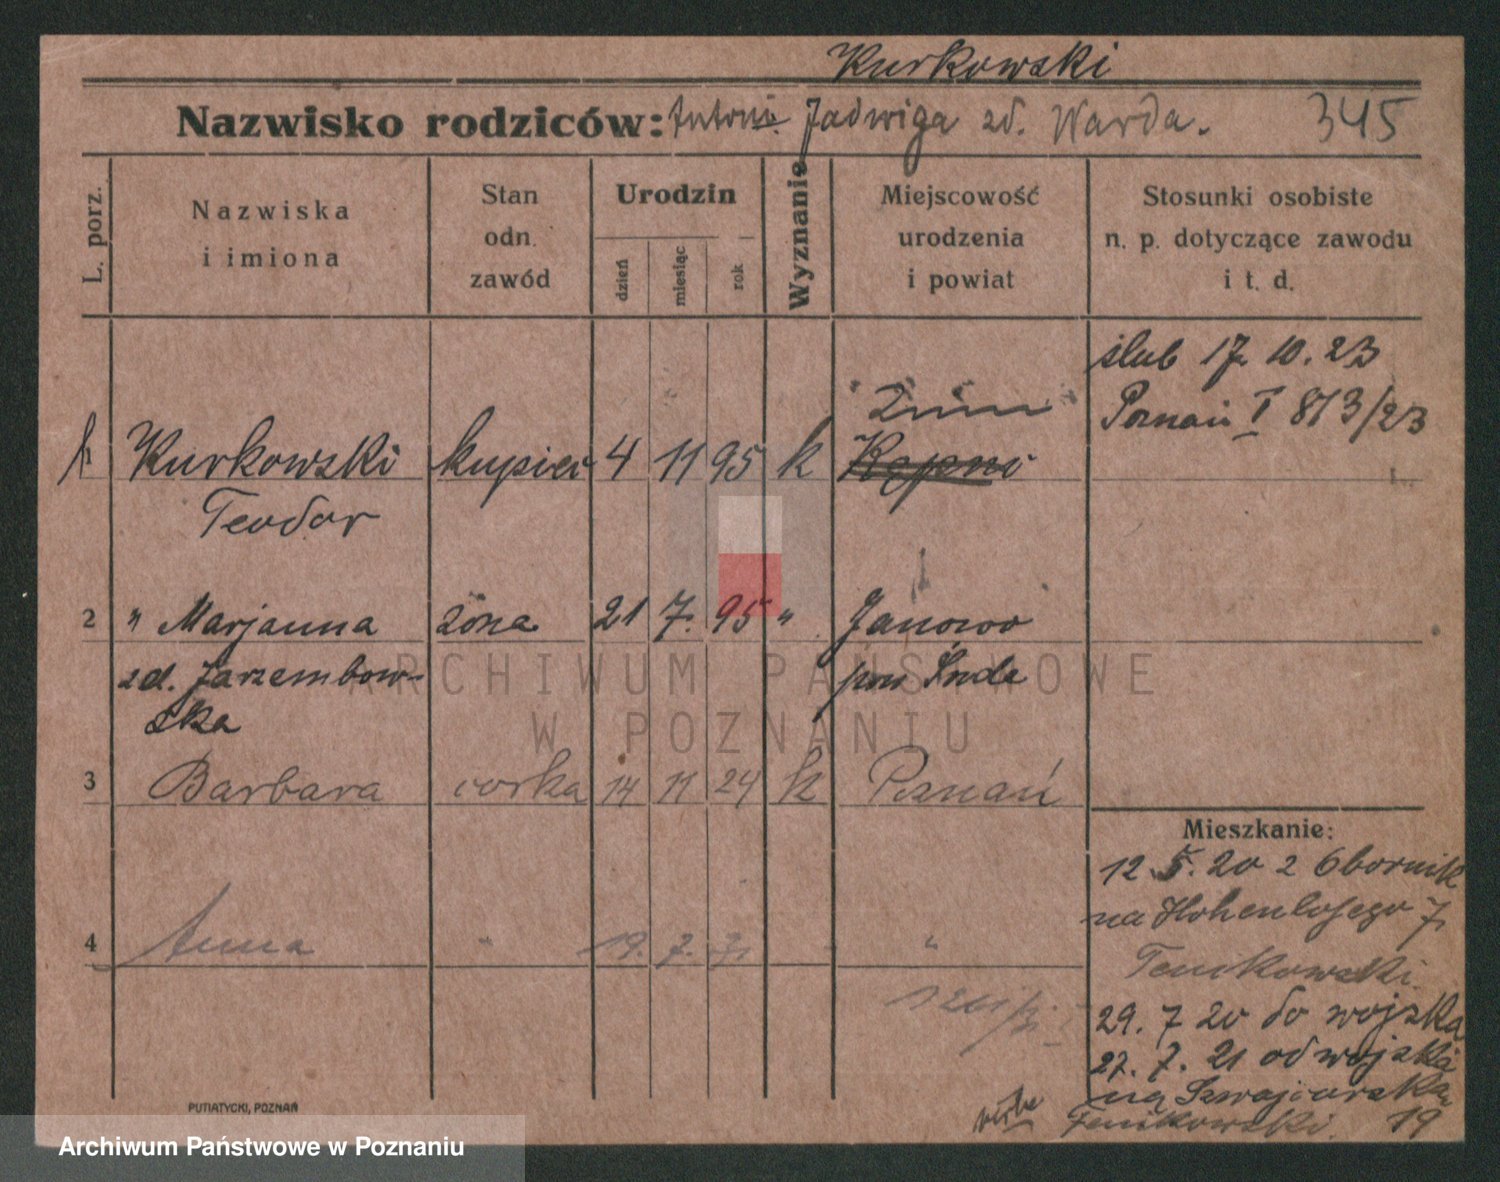 Kurkowski
Nazwisko rodziców: Antoni Jadwiga zd. Warda. 345
L. porz.
Nazwiska i imiona
Stan odn. zawód
Urodzin
dzień
miesiąc
rok
Wyznanie
Miejscowość urodzenia i powiat
Stosunki osobiste n. p. dotyczące zawodu i t. d.
ślub 17 10. 23
Poznań I 873/23
1 Kurkowski kupiec 4 11 95 k Kępno
Teodor
2 " Marjanna żona 21 7. 95 " Janowo
zd. Jarzembow-
ska
pow Środa
3 Barbara córka 14 11 24 k Poznań
Mieszkanie:
12 5. 20 z Obornik
na Hohenlojego 7
4 Anna " 19. 7. 31 "
Tenikowski
1261/31
29. 7 20 do wojska
27. 7. 21 od wojska
na Szwajcarska
Tenikowski. 19
PUTIATYCKI, POZNAŃ
ARCHIWUM PAŃSTWOWE
W POZNANIU
Archiwum Państwowe w Poznaniu